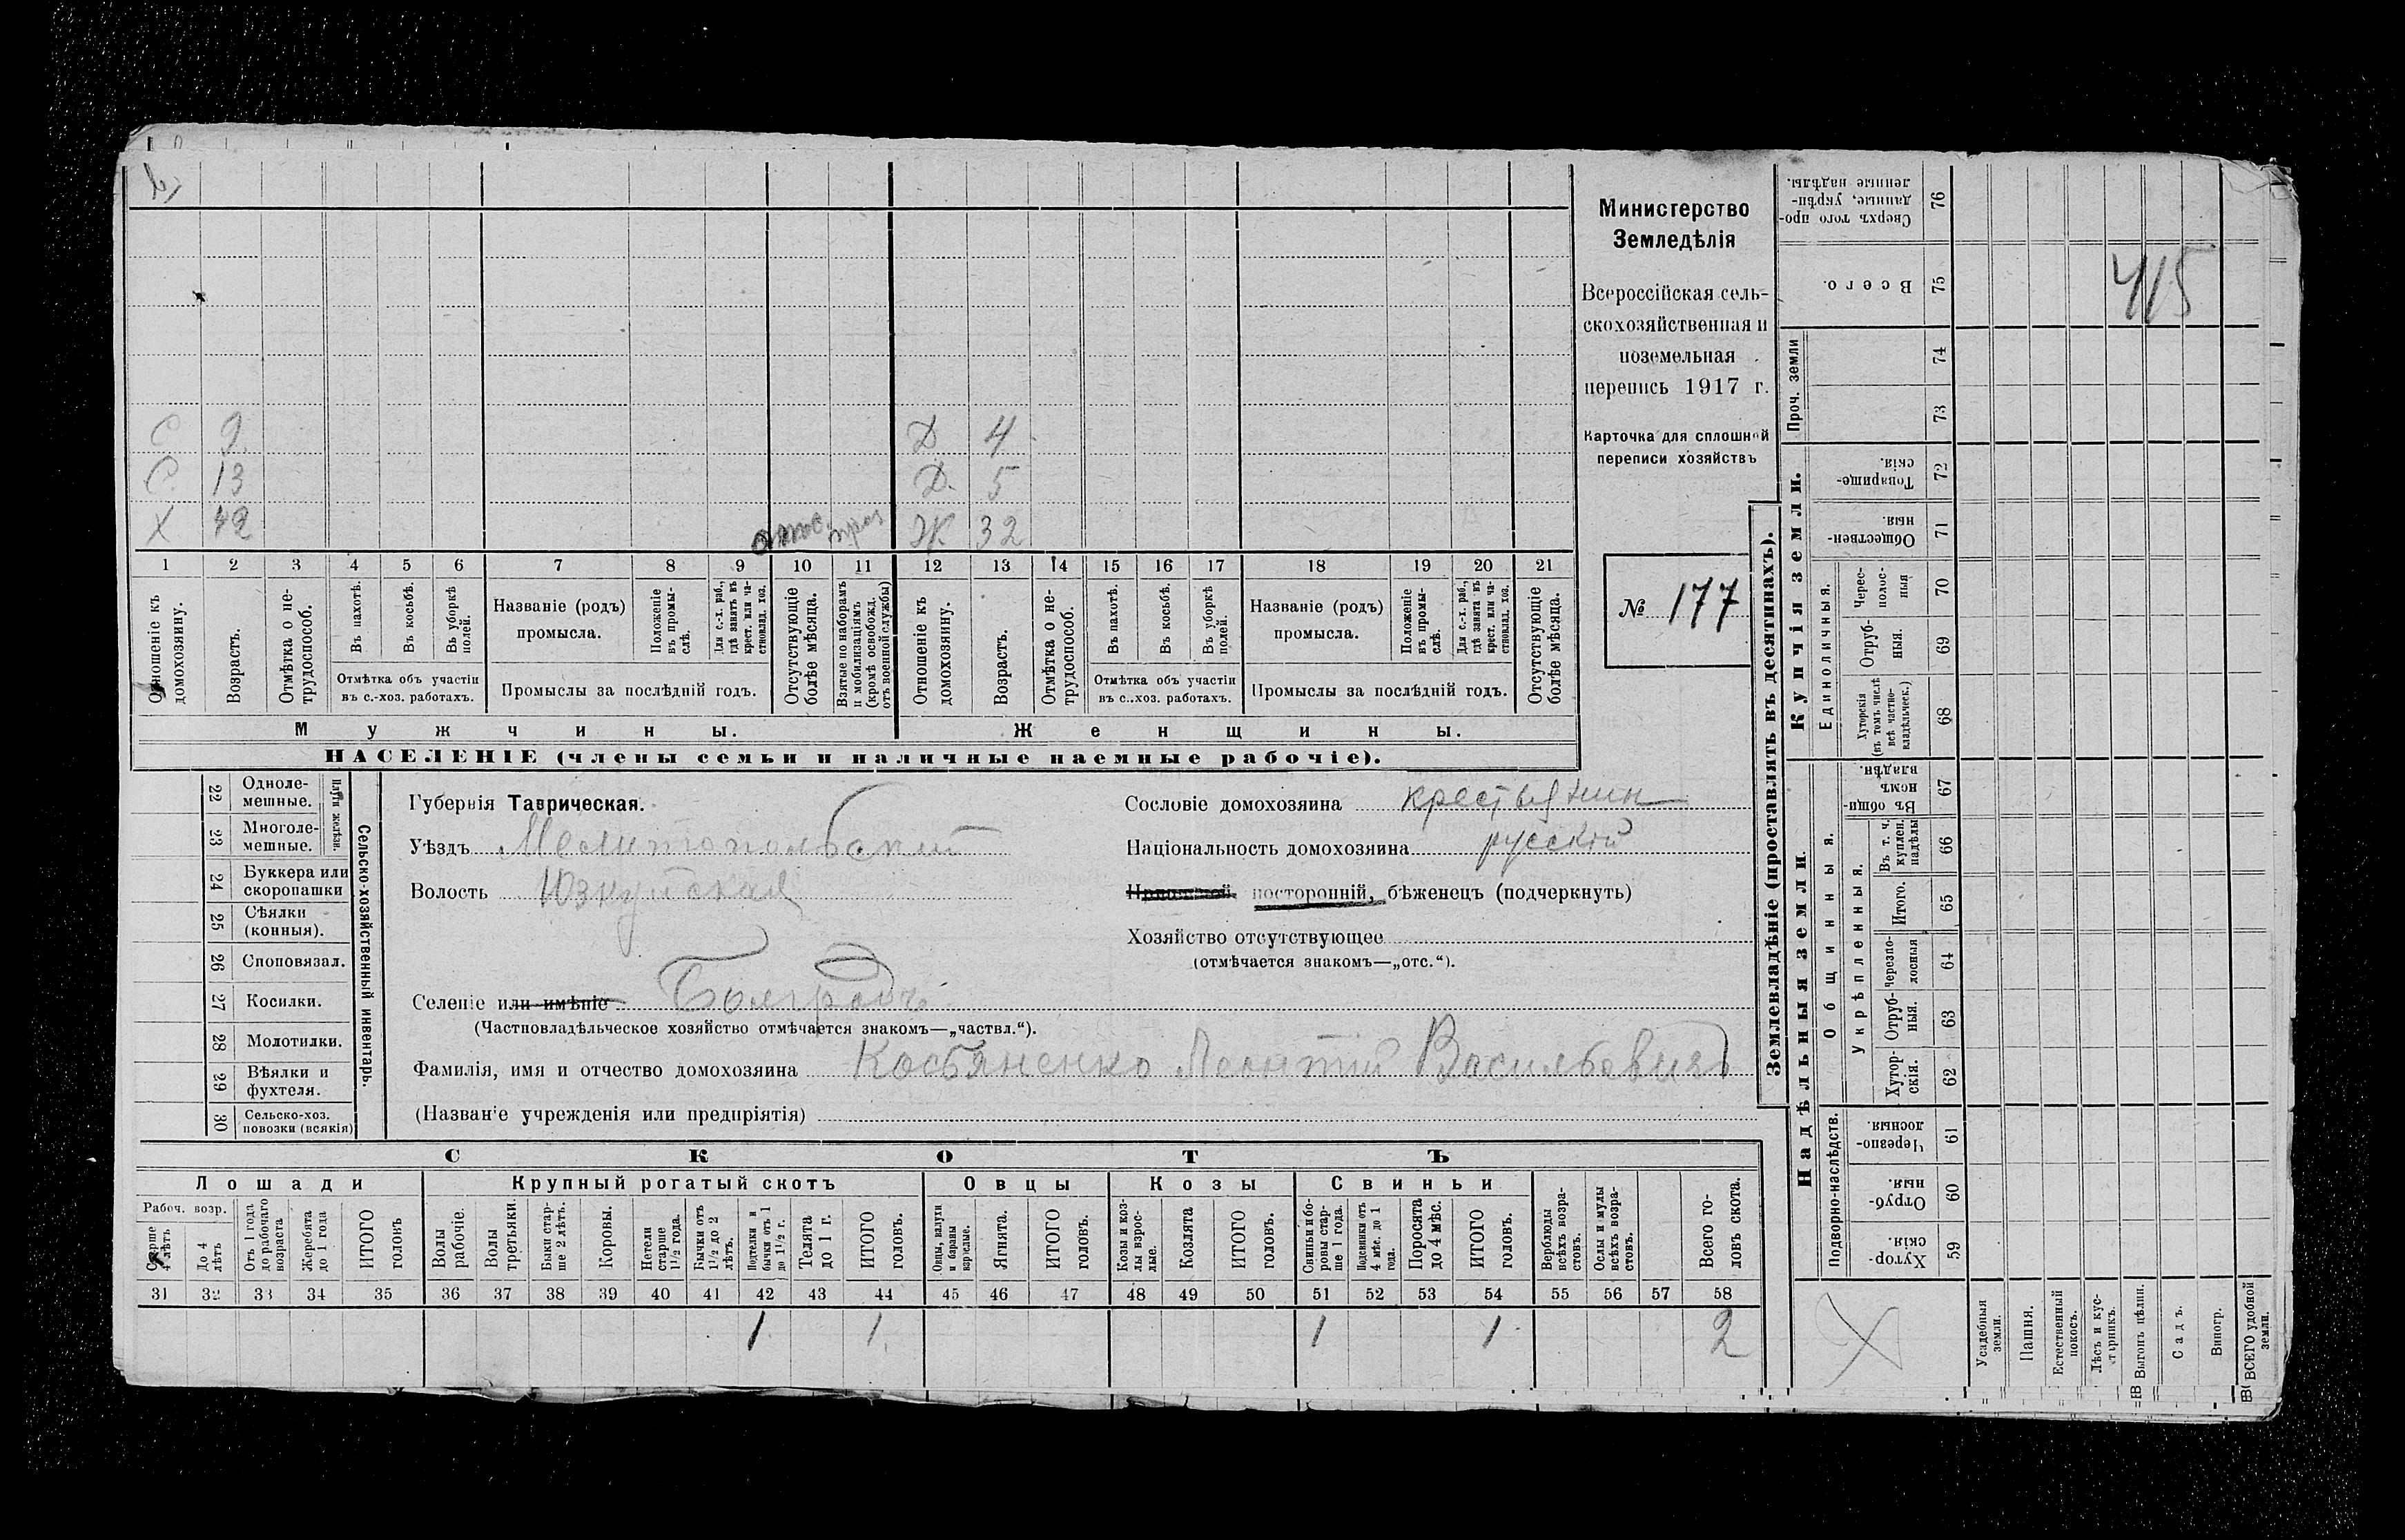 Министерство
Земледѣлія
Всероссійская сель-
скохозяйственная и
поземельная
перепись 1917 г.
Карточка для сплошной
переписи хозяйствъ
№ 177
415
С 9 Д 4
С 13 Д. 5
Х 42 Ж 32
1 2 3 4 5 6 7 8 9 10 11 12 13 14 15 16 17 18 19 20 21
Отношеніе къ домохозяину.
Возрастъ.
Отмѣтка о не-трудоспособ.
Въ пахотѣ.
Въ косьбѣ.
Въ уборкѣ полей.
Отмѣтка объ участіи
въ с.-хоз. работахъ.
Названіе (родъ)
промысла.
Положеніе въ промы-слѣ.
Для с.-х. раб., гдѣ занятъ въ крест. или ча-стновлад. хоз.
Промыслы за послѣдній годъ.
Отсутствующіе болѣе мѣсяца.
Взятые по наборамъ и мобилизаціямъ (кромѣ освобожд. отъ военной службы)
Отношеніе къ домохозяину.
Возрастъ.
Отмѣтка о не-трудоспособ.
Въ пахотѣ.
Въ косьбѣ.
Въ уборкѣ полей.
Отмѣтка объ участіи
въ с.-хоз. работахъ.
Названіе (родъ)
промысла.
Положеніе въ промы-слѣ.
Для с.-х. раб., гдѣ занята въ крест. или ча-стновлад. хоз.
Промыслы за послѣдній годъ.
Отсутствующіе болѣе мѣсяца.
Мужчины. Женщины.
НАСЕЛЕНІЕ (члены семьи и наличные наемные рабочіе).
22 Одноле-мешные.
23 Многоле-мешные.
Плуги желѣзн.
24 Буккера или скоропашки
25 Сѣялки (конныя).
26 Споповязал.
27 Косилки.
28 Молотилки.
29 Вѣялки и фухтеля.
30 Сельско-хоз. повозки (всякія)
Сельско-хозяйственный инвентарь.
Губернія Таврическая.
Уѣздъ Мелитопольскій
Волость Юзкуйская
Селеніе или имѣніе Болградъ
(Частновладѣльческое хозяйство отмѣчается знакомъ—„частвл.“).
Фамилія, имя и отчество домохозяина Косьяненко Леонтій Васильевичъ
(Названіе учрежденія или предпріятія)
Сословіе домохозяина крестьянин
Національность домохозяина русскій
посторонній, бѣженецъ (подчеркнуть)
Хозяйство отсутствующее
(отмѣчается знакомъ—„отс.“).
СКОТЪ
Лошади Крупный рогатый скотъ Овцы Козы Свиньи
Рабоч. возр.
Старше 4 лѣтъ
До 4 лѣтъ
Отъ 1 года до рабочаго возраста
Жеребята до 1 года
ИТОГО головъ
Волы рабочіе.
Волы третьяки.
Быки стар-ше 2 лѣтъ.
Коровы.
Нетели старше 1½ года.
Бычки отъ 1½ до 2 лѣтъ.
Подтелки и бычки отъ 1 до 1½ г.
Телята до 1 г.
ИТОГО головъ.
Овцы, валухи и бараны взрослые.
Ягнята.
ИТОГО головъ.
Козы и коз-лы взрос-лые.
Козлята
ИТОГО головъ.
Свиньи и бо-ровы стар-ше 1 года.
Подсвинки отъ 4 мѣс. до 1 года.
Поросята до 4 мѣс.
ИТОГО головъ.
Верблюды всѣхъ возра-стовъ.
Ослы и мулы всѣхъ возра-стовъ.
Всего го-ловъ скота.
31 32 33 34 35 36 37 38 39 40 41 42 43 44 45 46 47 48 49 50 51 52 53 54 55 56 57 58
1 1 1 1 2
Землевладѣніе (проставлять въ десятинахъ).
Купчія земли.
Надѣльныя земли.
Сверхъ того про-данные, укрѣп-ленные надѣлы. 76
Всего. 75
Проч. земли 74
73
Товарище-скія. 72
Обществен-ныя. 71
Единоличныя.
Черес-полос-ныя 70
Отруб-ныя. 69
Хуторскія (въ томъ числѣ всѣ частно-владѣльческ.) 68
Общинныя.
Въ общин-номъ владѣн. 67
Укрѣпленныя.
Въ т. ч. куплен. надѣлы 66
Итого. 65
Черезпо-лосныя 64
Отруб-ныя. 63
Хутор-скія. 62
Подворно-наслѣдств.
Черезпо-лосныя. 61
Отруб-ныя. 60
Хутор-скія. 59
Х
Усадебныя земли.
Пашня.
Естественный покосъ.
Лѣсъ и кус-тарникъ.
Выгонъ цѣлин.
Садъ.
Виногр.
ВСЕГО удобной земли.